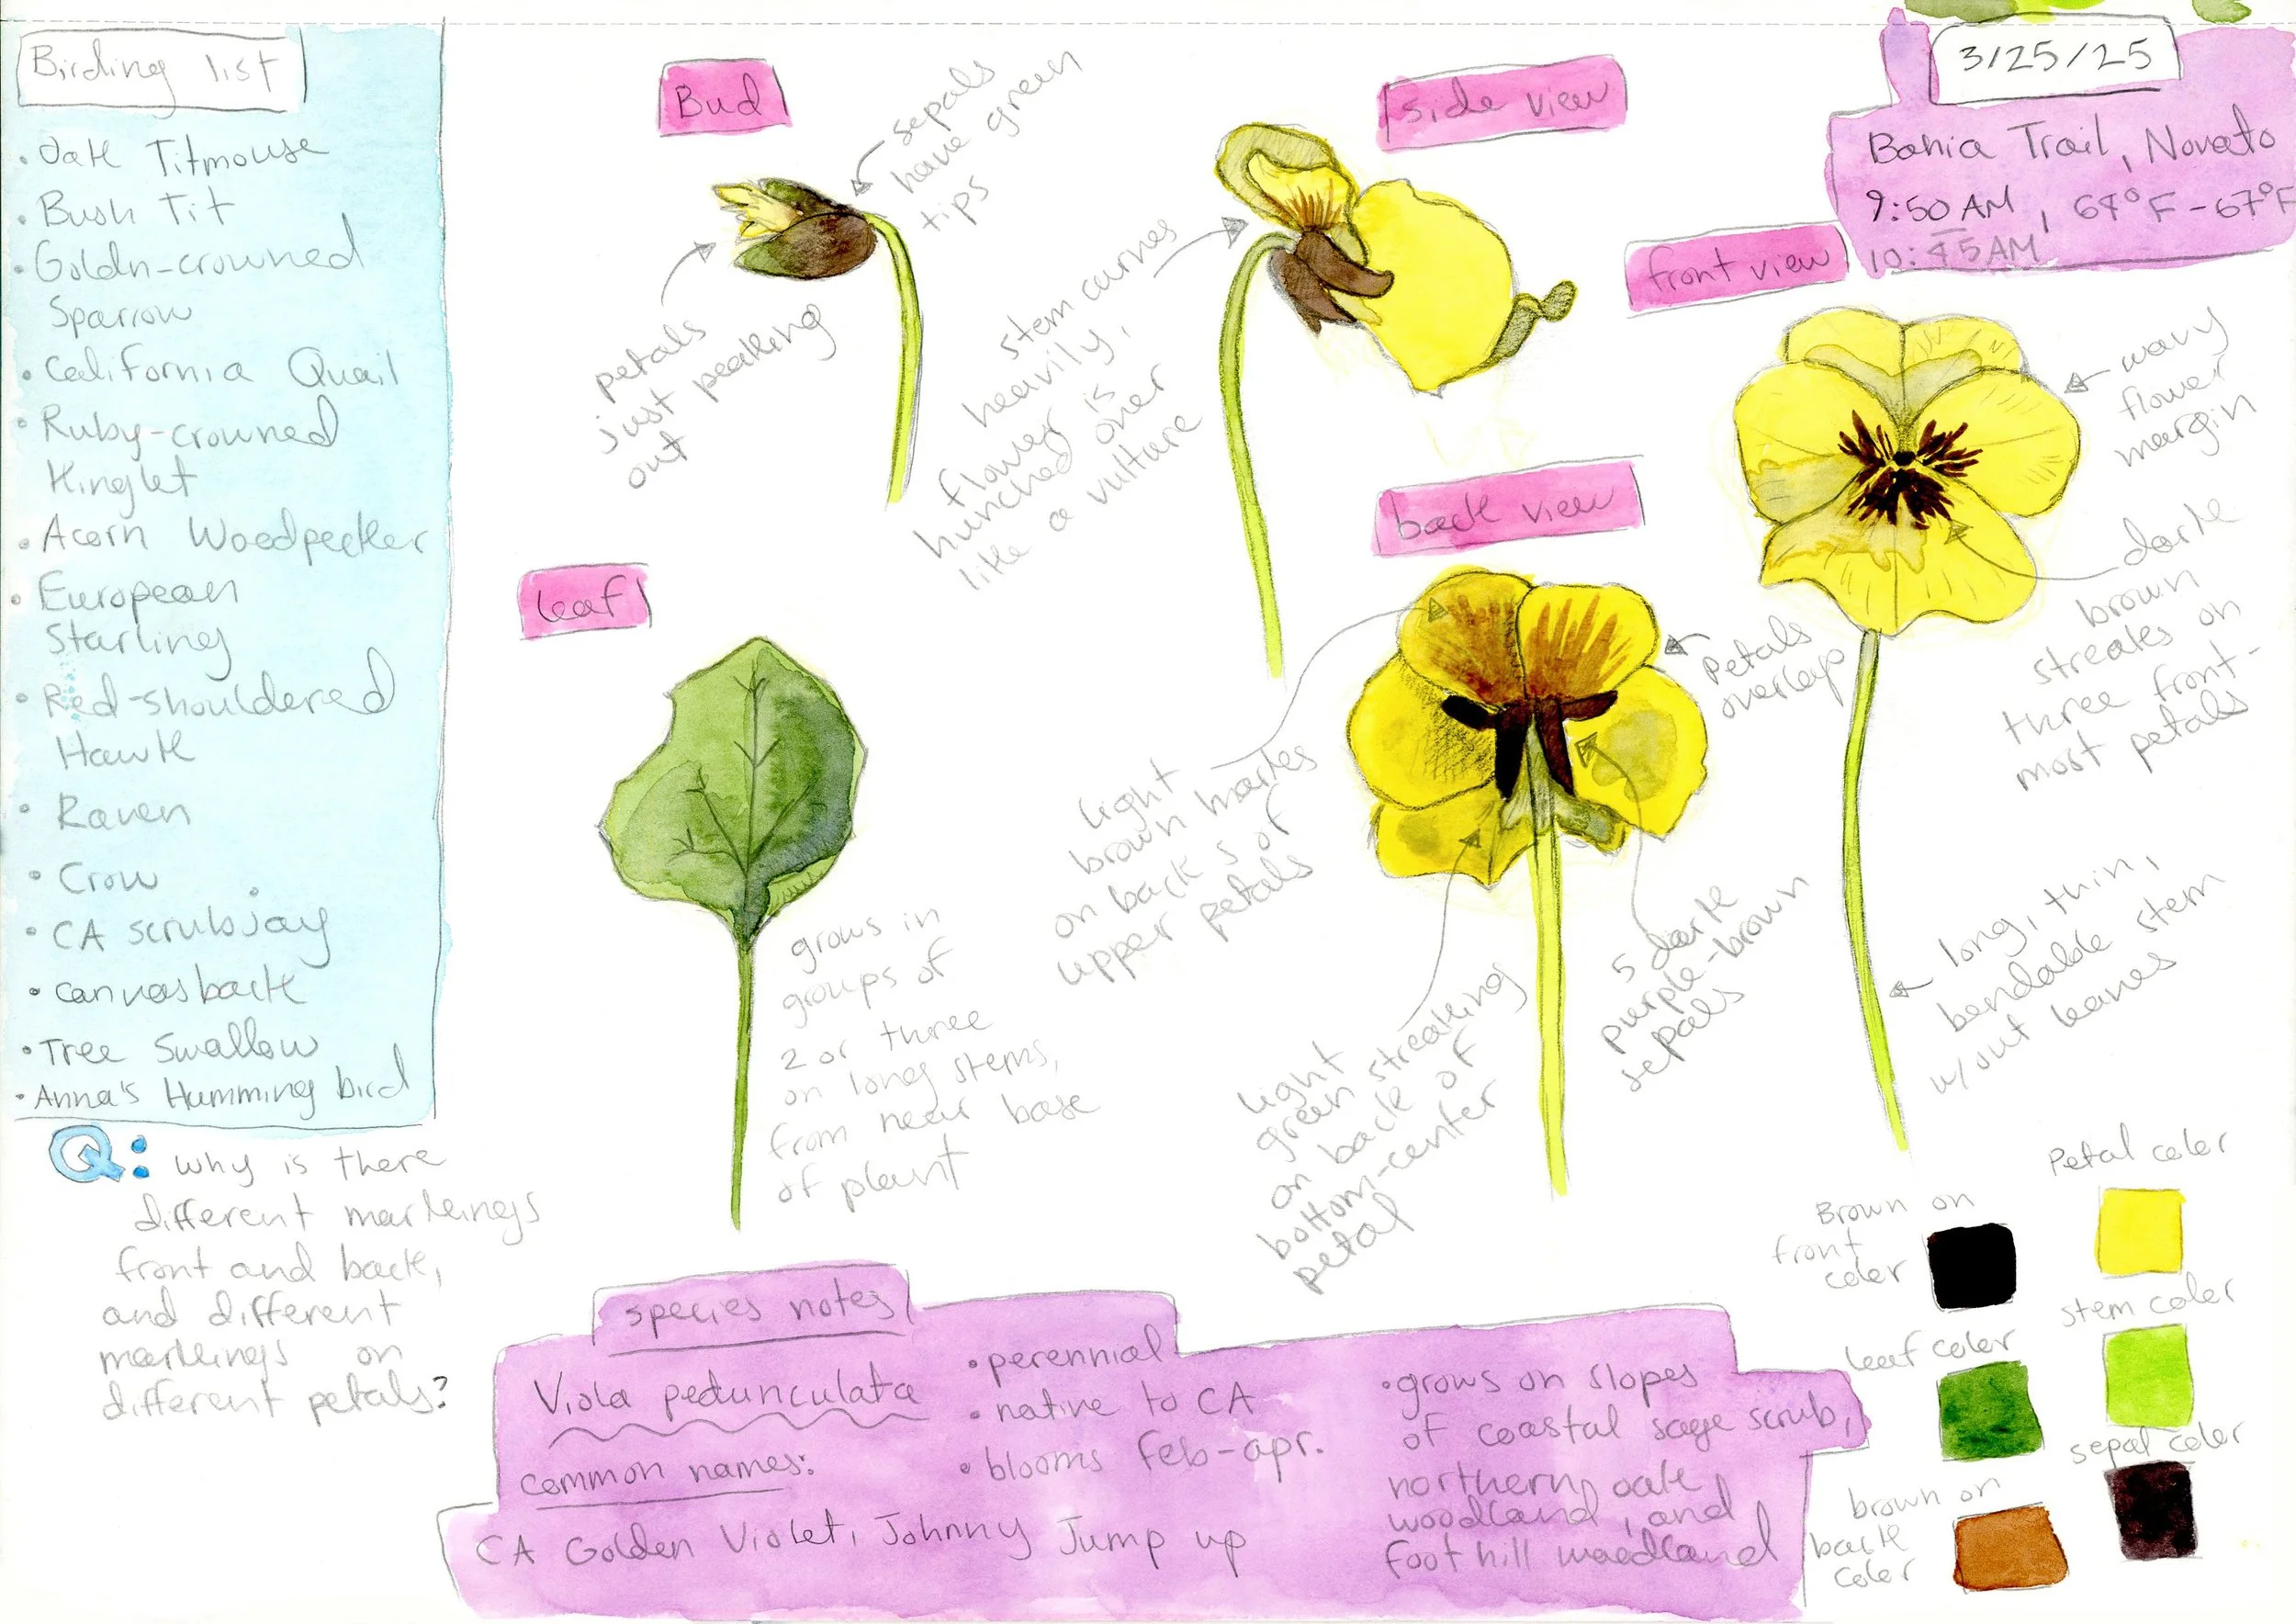 Birding list
• Oak Titmouse
• Bush Tit
• Goldn-crowned
Sparrow
• California Quail
• Ruby-crowned
Kinglet
• Acorn Woodpecker
• European
Starling
• Red-shouldered
Hawk
• Raven
• Crow
• CA scrubjay
• canvasback
• Tree Swallow
• Anna's Humming bird
Q: why is there
different markings
front and back,
and different
markings on
different petals?
Bud
sepals
have green
tips
petals
just peaking
out
side view
stem curves
heavily,
flower is
hunched over
like a vulture
3/25/25
Bahia Trail, Novato
9:50 AM, 64°F-67°F
10:45AM
front view
wavy
flower
margin
dark
brown
streaks on
three front-
most petals
long, thin,
bendable stem
w/out leaves
back view
Petals
overlap
light
brown markes
on back s of
upper petals
5 dark
purple-brown
sepals
light
green streaking
on back of
bottom-center
petal
leaf
grows in
groups of
2 or three
on long stems,
from near base
of plant
species notes
Viola pedunculata
common names:
CA Golden Violet, Johnny Jump up
• perennial
• native to CA
• blooms Feb-apr.
• grows on slopes
of coastal sage scrub,
northern oak
woodland, and
foothill woodland
Petal color
Brown on
front
color
stem color
leaf color
sepal color
brown on
back
color